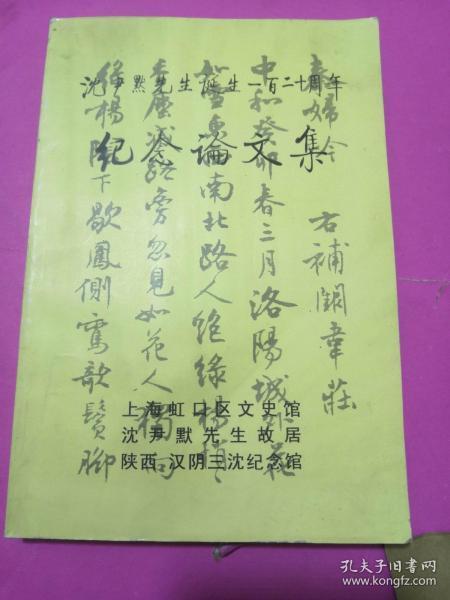 沈尹默先生诞生一百二十周年
纪念论文集
秦婦吟 右補闕韋莊
中和癸卯春三月洛陽城外花
如雪東南北路人絕綠楊悄
香塵滅路旁忽見如花人獨向
綠楊下歇鳳側鸞欹鬢腳
上海虹口区文史馆
沈尹默先生故居
陕西 汉阴三沈纪念馆
孔夫子旧书网
www.kongfz.com